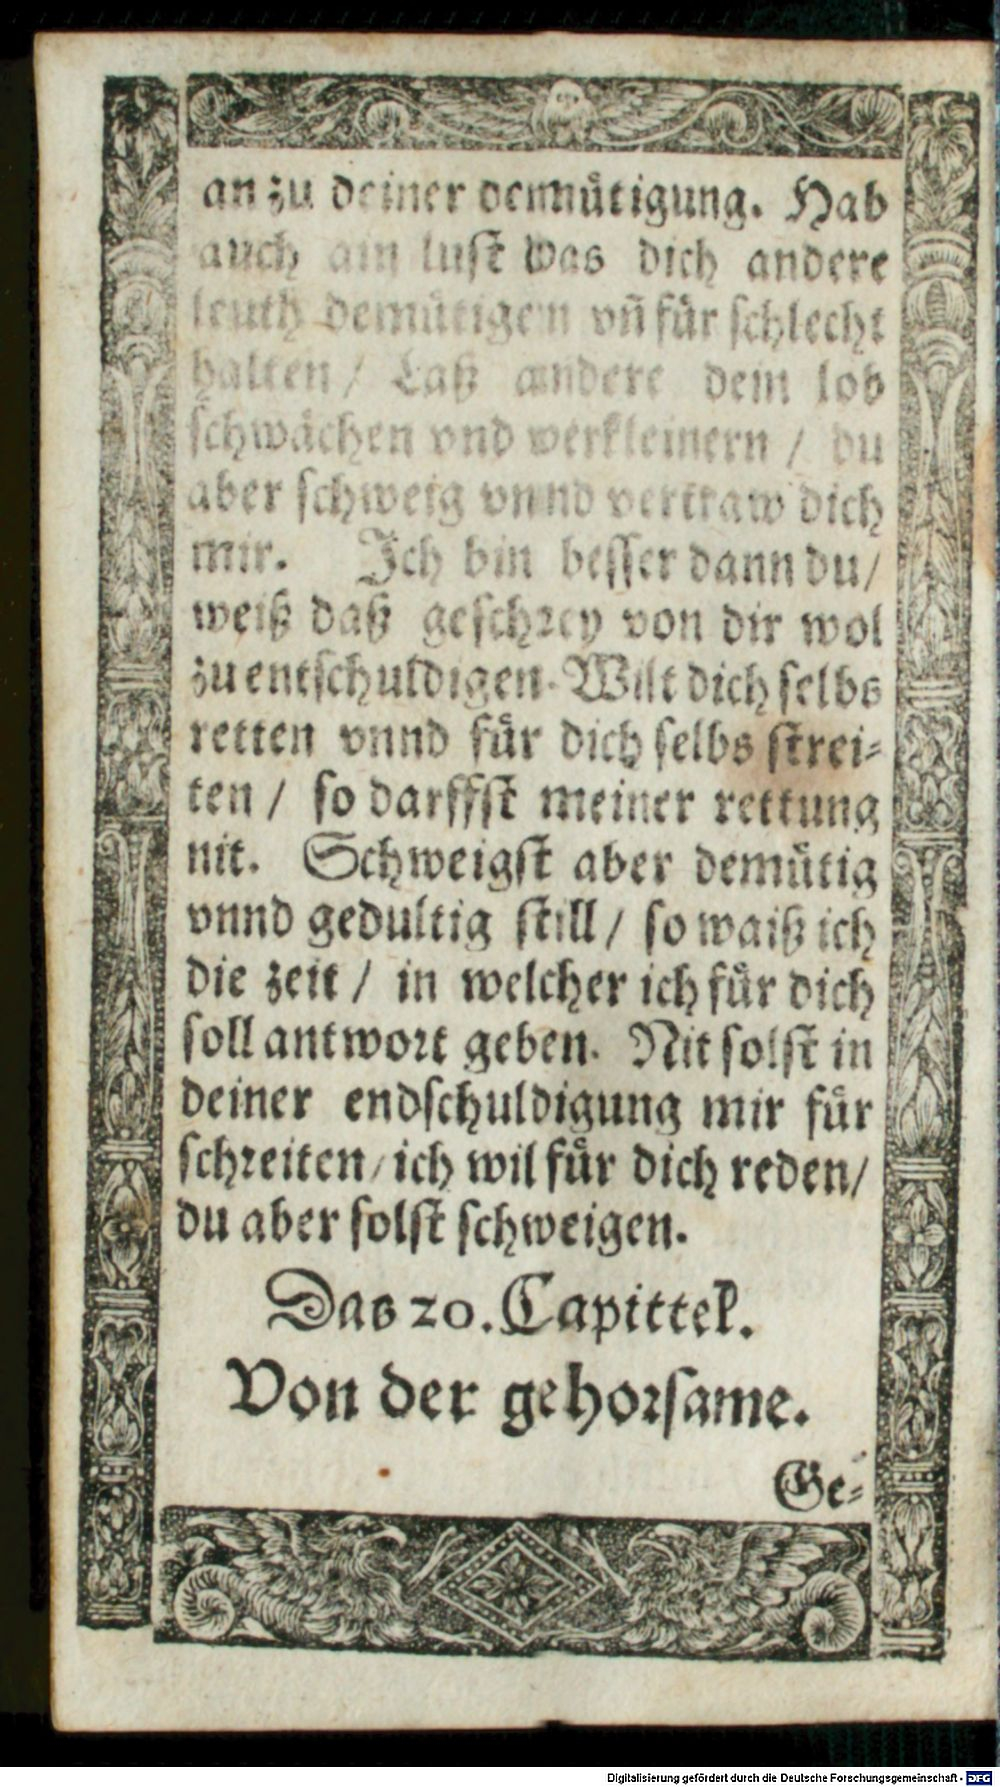 an zu deiner demnütigung. Hab
auch ain lust was dich andere
leuth demütigen vñ für schlecht
halten / Laß andere dein lob
schwächen vnd verkleinern / du
aber schweig vnnd vertraw dich
mir. Ich bin besser dann du /
weiß daß geschrey von dir wol
zu entschuldigen. Wilt dich selbs
retten vnnd für dich selbs strei=
ten / so darffst meiner rettung
nit. Schweigst aber demütig
vnnd gedultig still / so waiß ich
die zeit / in welcher ich für dich
soll antwort geben. Nit solst in
deiner endschuldigung mir für
schreiten / ich wil für dich reden /
du aber solst schweigen.
Das 20. Capittel.
Von der gehorsame.
Ge=
Digitalisierung gefördert durch die Deutsche Forschungsgemeinschaft - DFG